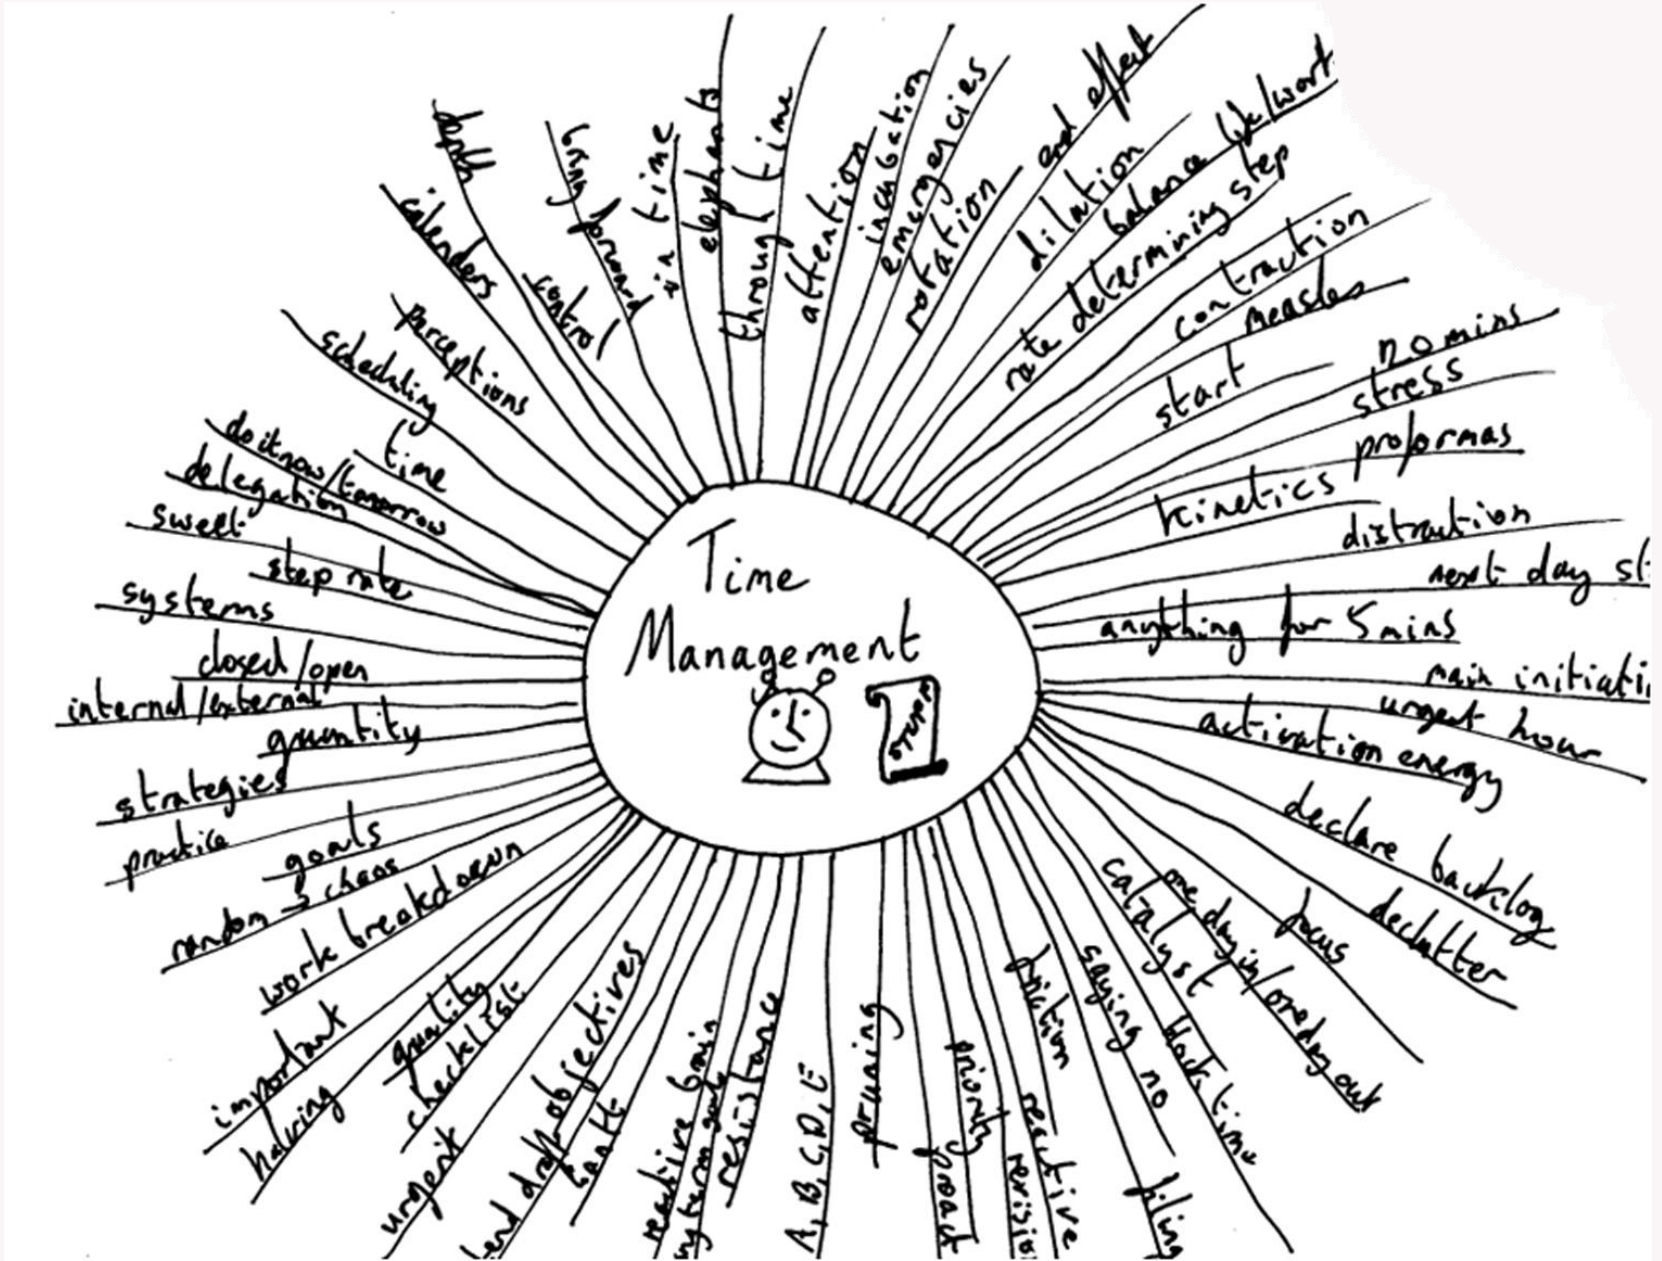 Time
Management
elephants
through time
attention
incubation
emergencies
rotation
and effect
dilation
balance life/work
rate determining step
contraction
measles
start
no mins
stress
proformas
kinetics
distraction
next day st
anything for 5 mins
main initiati
urgent hour
activation energy
declare backlog
declutter
focus
one day in/one day out
catalyst
block time
saying no
filing
friction
reactive
revisio
priority
proact
pruning
A, B, C, D, E
resistance
reactive brain
objectives
urgent
checklist
quality
halving
important
work breakdown
random → chaos
goals
practice
strategies
quantity
internal/external
closed/open
systems
step rate
sweet
delegation
do it now/tomorrow
time
scheduling
perceptions
calenders
depth
control
bring forward
in time